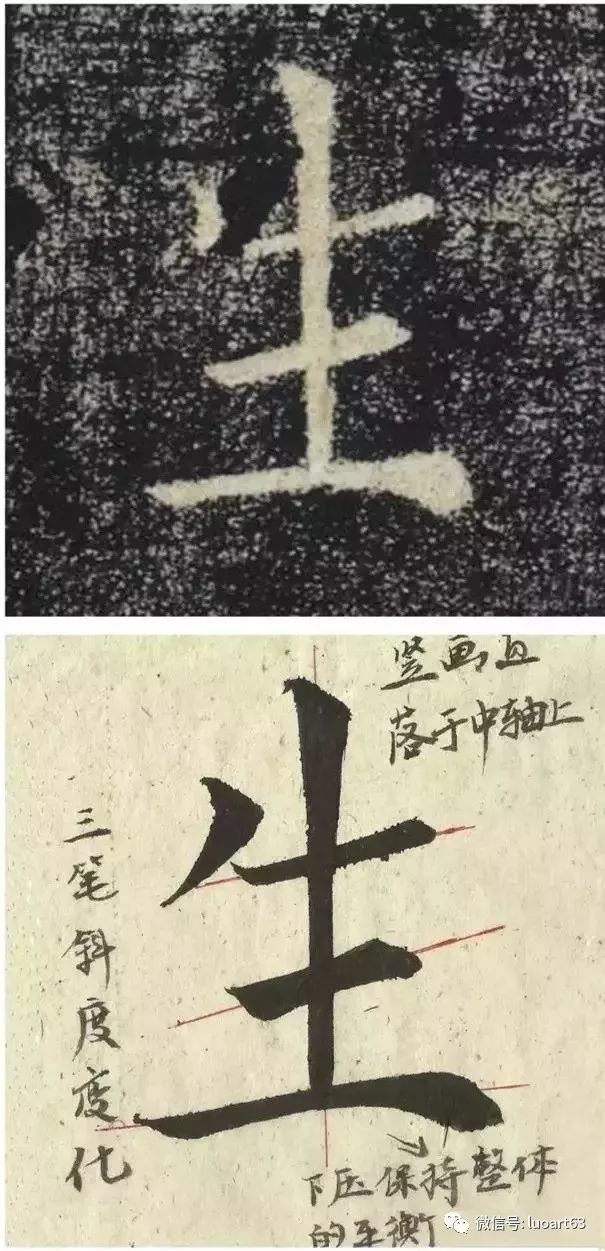 生
生
竖画且
落于中轴上
三笔斜度变化
下压保持整体
的平衡
微信号: luoart63